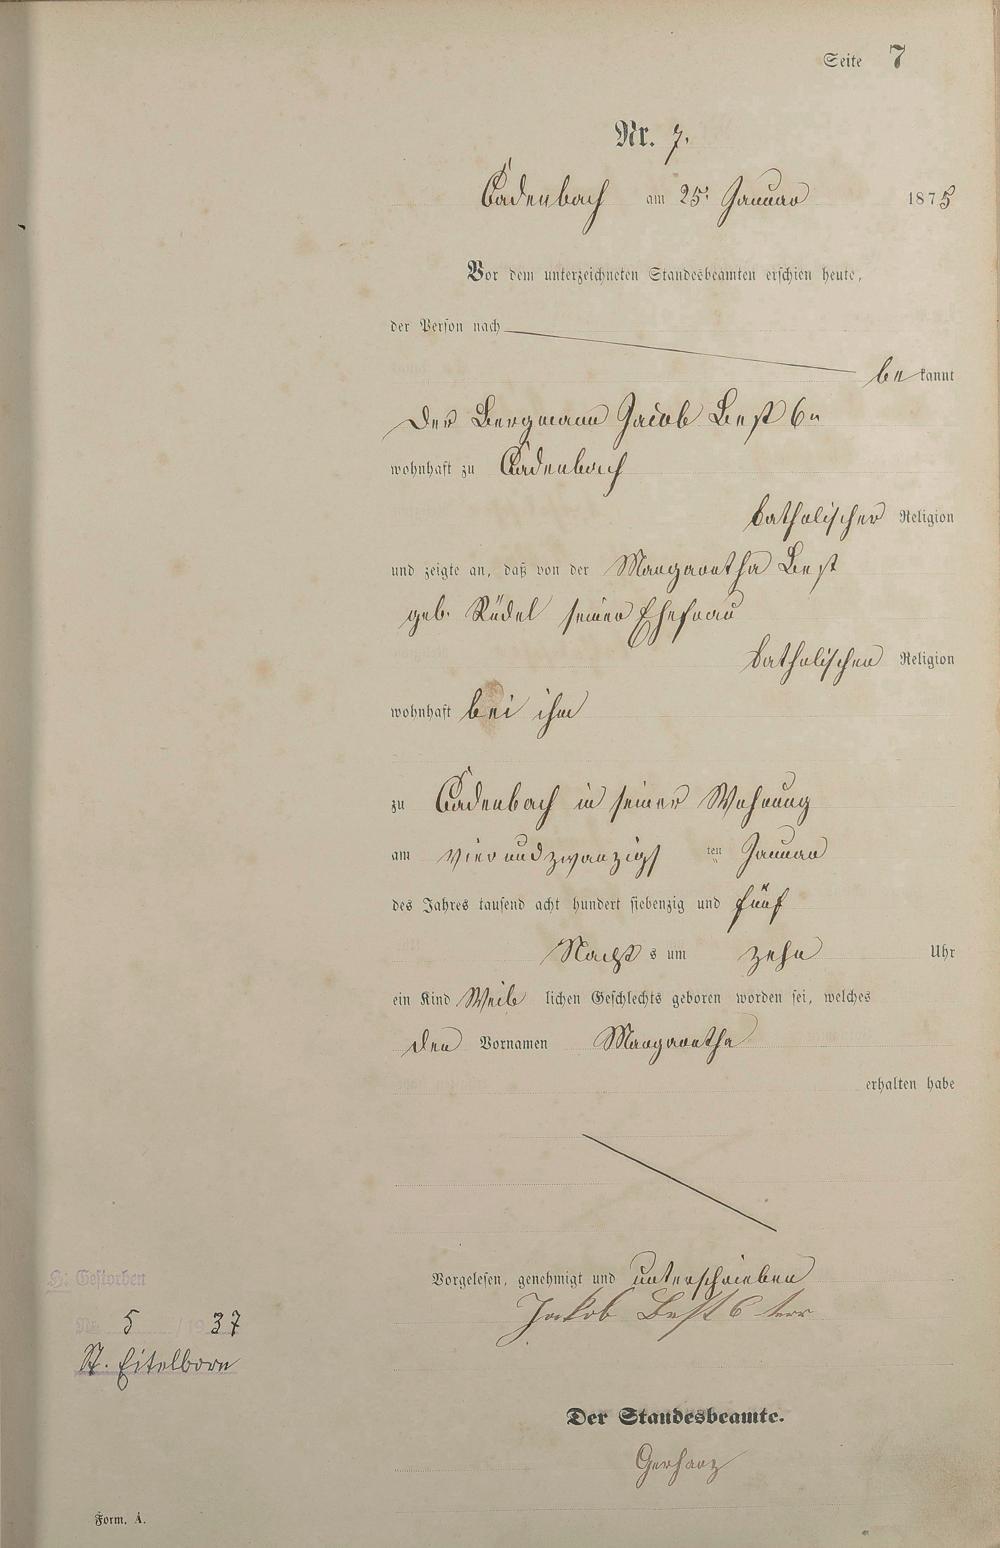 Seite 7
Nr. 7.
Cadenbach am 25. Januar 1875
Vor dem unterzeichneten Standesbeamten erschien heute,
der Person nach
be kannt
der Bergmann Jacob Best 6r
wohnhaft zu Cadenbach
katholischer Religion
und zeigte an, daß von der Margaretha Best
geb. Rüdel seiner Ehefrau
katholischen Religion
wohnhaft bei ihm
zu Cadenbach in seiner Wohnung
am vierundzwanzigs ten Januar
des Jahres tausend acht hundert siebenzig und fünf
Nacht s um zehn Uhr
ein Kind Weib lichen Geschlechts geboren worden sei, welches
den Vornamen Margaretha
erhalten habe
Vorgelesen, genehmigt und unterschrieben
Jakob Best 6 ter
H: Gestorben
Nr. 5 /1937
St. Eitelborn
Der Standesbeamte.
Gerharz
Form. A.